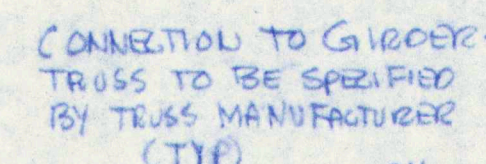 CONNECTION TO GIRDER
TRUSS TO BE SPECIFIED
BY TRUSS MANUFACTURER
(TYP)